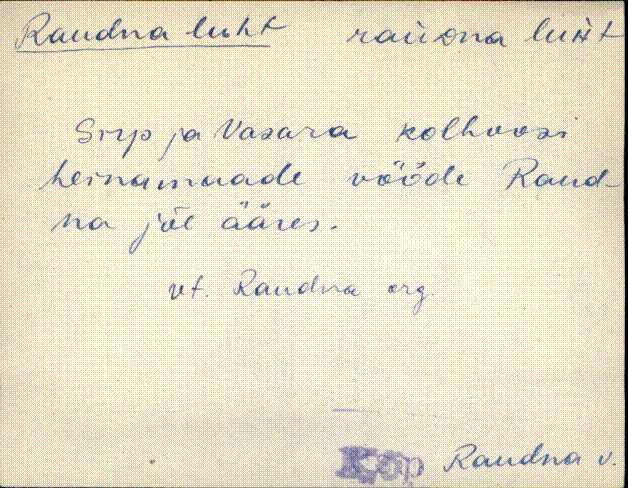 Raudna luht
Sirp ja Vasara kolhoosi
heinamaade vööde Raud-
na jõe ääres.
vt. Raudna org.
Kõp Raudna v.